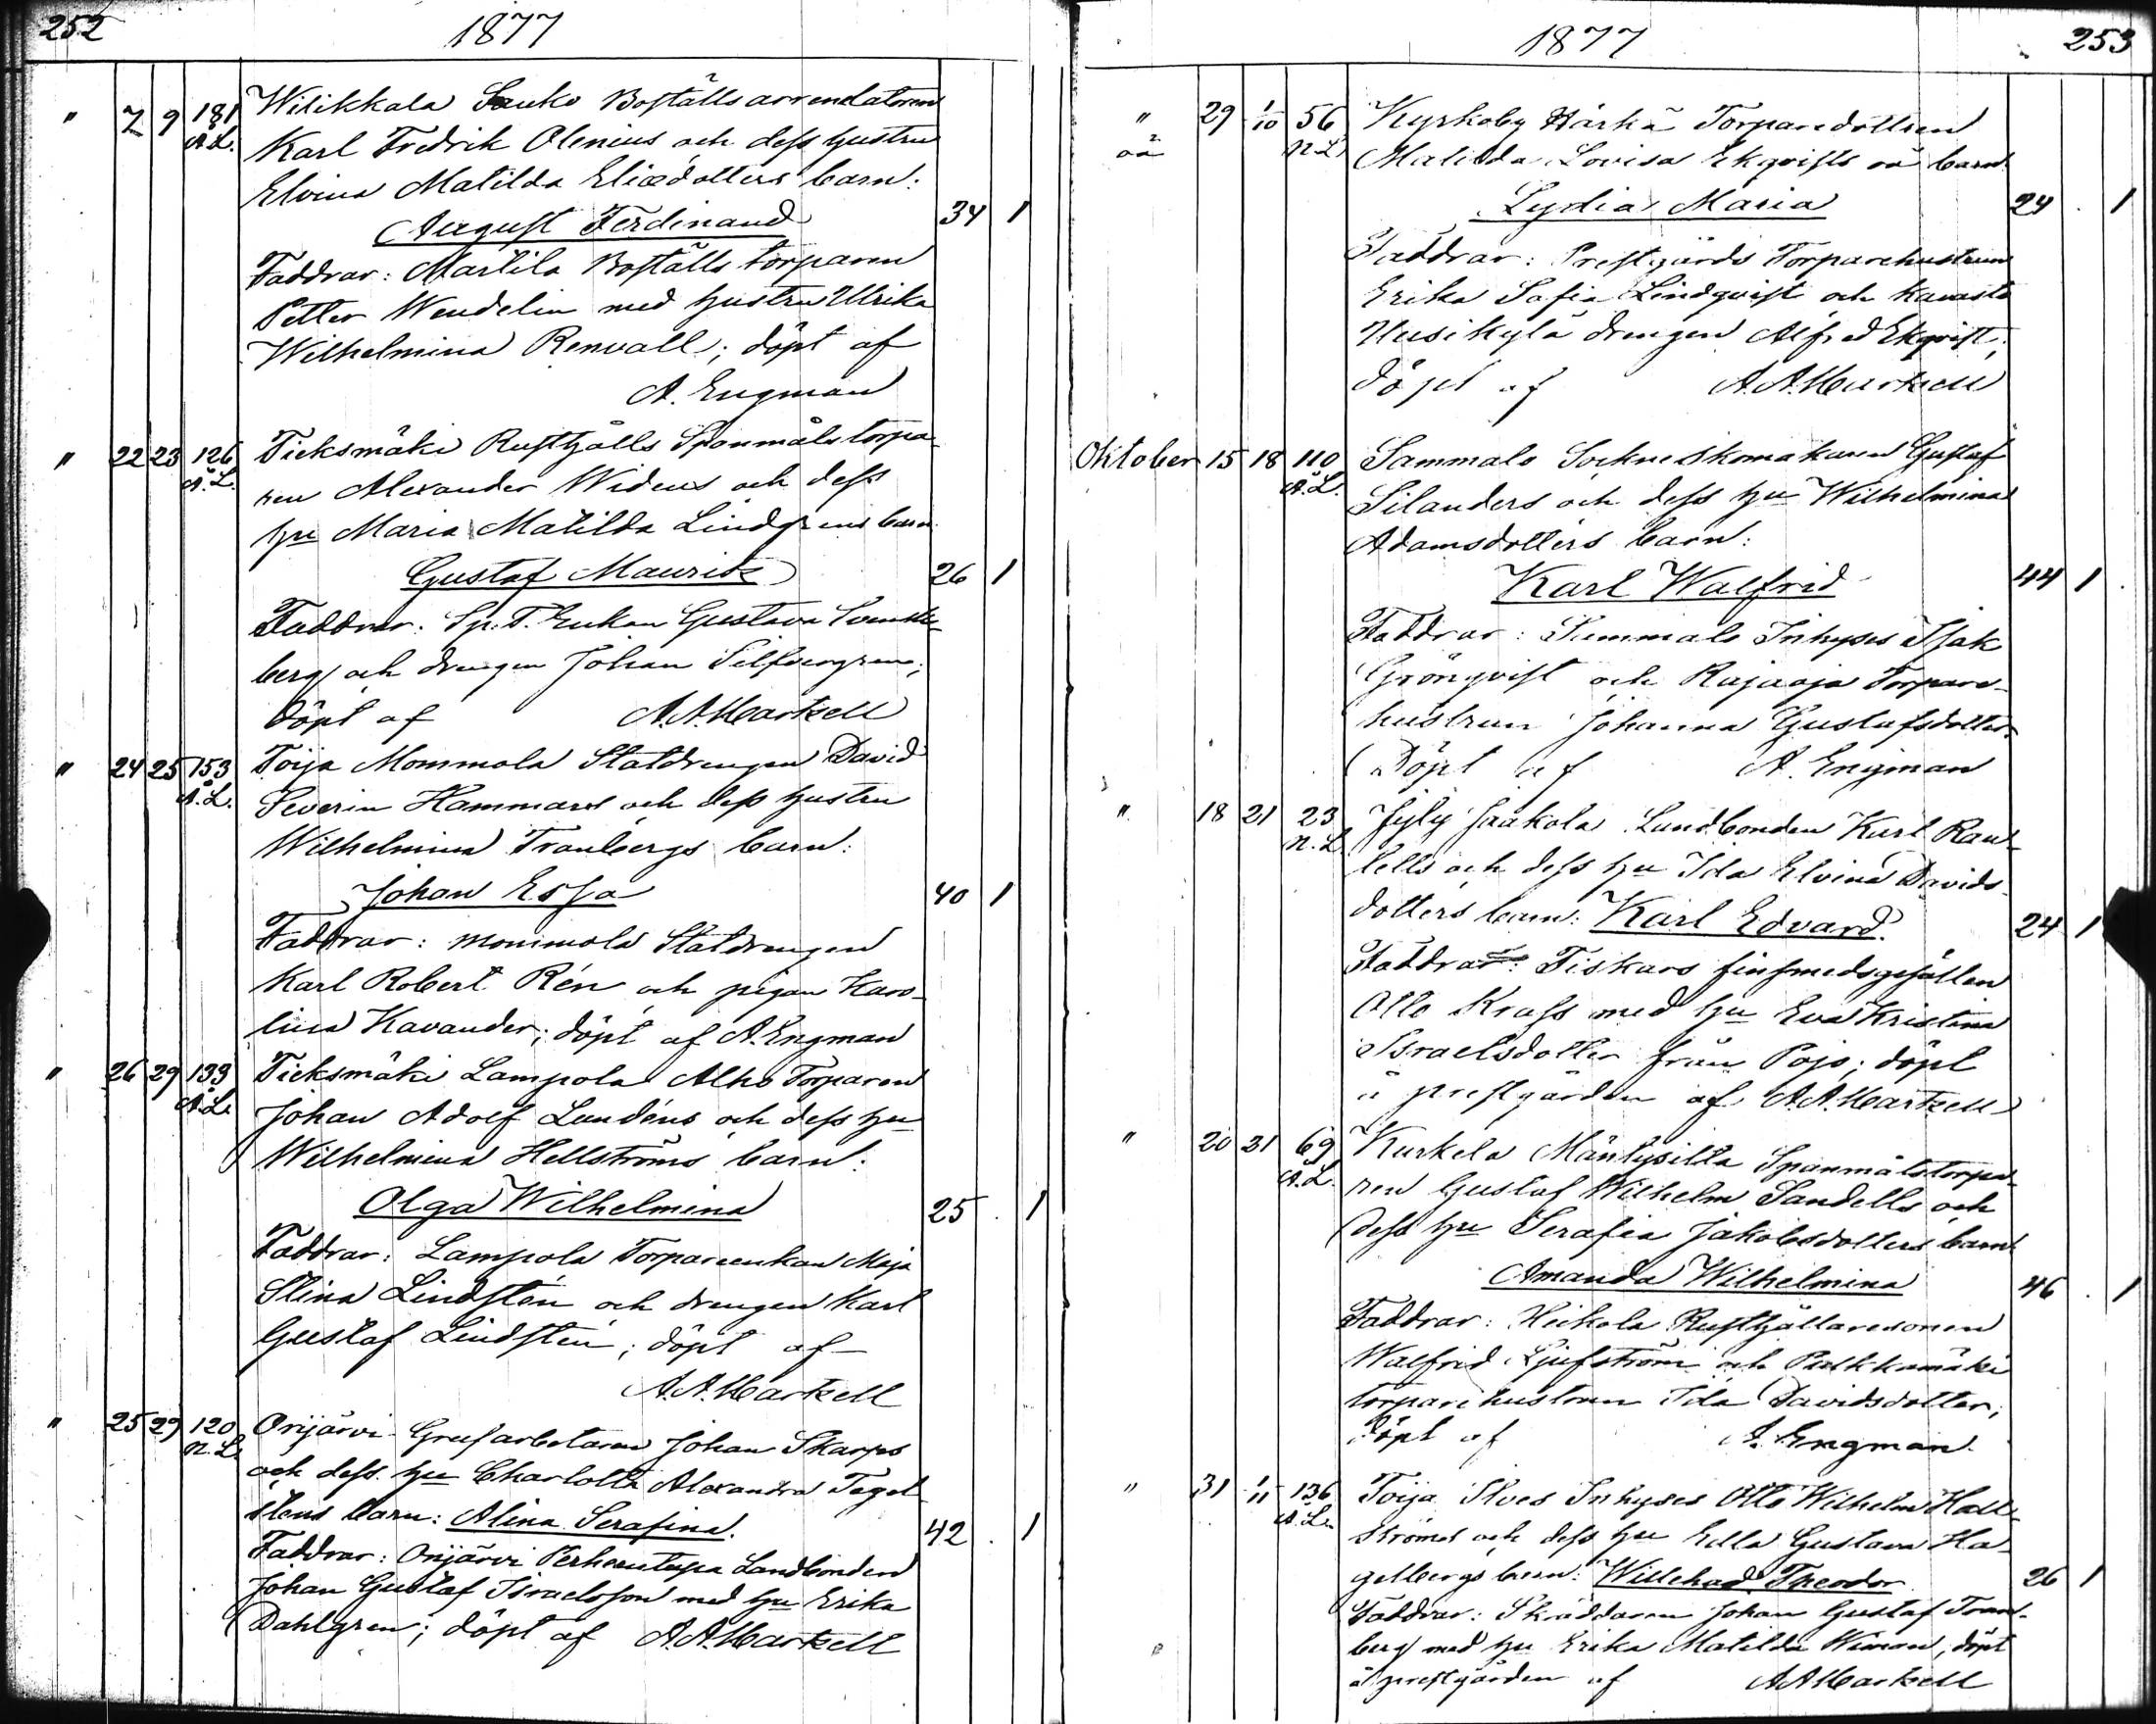 252
1877
" 7 9 181 Wiikkala Sauko Boställsarrendatoren
Å.L. Karl Fredrik Olenius och dess hustru
Elvina Matilda Eliædotters barn:
August Ferdinand 34 1
Faddrar: Martila Boställs torparen
Petter Wendelin med hustru Ulrika
Wilhelmina Renvall; döpt af
A. Engman
" 22 23 126 Ticksmäki Rusthålls Spanmåls torpa-
Å.L. ren Alexander Widens och dess
hu Maria Matilda Lindgrens barn
Gustaf Maurits 26 1
Faddrar: Sp. T. Enkan Gustava
berg och drengen Johan Silfvergren;
döpt af A.A. Markell
" 24 25 153 Toija Mommola Statdrengen David
Å.L. Severin Hammars och dess hustru
Wilhelmina Tranbergs barn:
Johan Esja 40 1
Faddrar: Mommola Statdrengen
Karl Robert Rén och pigan Karo-
lina Kavander; döpt af A. Engman
" 26 29 133 Ticksmäki Lampola Alho Torparen
Å.L. Johan Adolf Lundéns och dess hu
Wilhelmina Hellströms barn:
Olga Wilhelmina 25 1
Faddrar: Lampola Torpareenkan Maja
Stina Lindstén och drengen Karl
Gustaf Lindstén; döpt af
A.A. Markell
" 25 29 120 Orijärvi Grufarbetaren Johan Skarps
N.L. och dess hu Charlotta Alexandra Tegel-
stens barn: Alina Serafina. 42 1
Faddrar: Orijärvi Landbonden
Johan Gustaf Israelsson med hu Erika
Dahlgren; döpt af A.A. Markell
1877
253
" 29 1/10 56 Kyrkoby Härkä Torparedottren
oä N.L. Matilda Lovisa Ekqvists oä barn:
Lydia Maria 24 1
Faddrar: Prestgårds Torparehustrun
Erika Sofia Lindqvist och Kavasto
Uusikylä drengen Alfred Ekqvist;
döpt af A.A. Markell
Oktober 15 18 110 Sammalo Sockneskomakaren Gustaf
Å.L. Silanders och dess hu Wilhelmina
Adamsdotters barn:
Karl Walfrid 44 1
Faddrar: Sammalo Inhyses Isak
Grönqvist och Rajaoja Torpare-
hustrun Johanna Gustafsdotter.
Döpt af A. Engman
" 18 21 23 Jyly Jaakola Landbonden Karl Ran-
N.L. tells och dess hu Ida Elvina Davids-
dotters barn: Karl Edvard. 24 1
Faddrar: Fiskars finsmedsgesällen
Otto Krass med hu Eva Kristina
Israelsdotter från Pojo; döpt
å prestgården af A.A. Markell
" 20 21 69 Kurkela Mäntysilta Spanmålstorpa-
Å.L. ren Gustaf Wilhelm Sandells och
dess hu Serafia Jakobsdotters barn
Amanda Wilhelmina 46 1
Faddrar: Heikola Rusthållaresonen
Walfrid Ljufström och Pulkkamäki
torparehustrun Ida Davidsdotter;
döpt af A. Engman.
" 31 1/11 136 Toija Ilves Inhyses Otto Wilhelm Hall-
Å.L. ströms och dess hu Edla Gustava Ha-
gelbergs barn: Willehad Theodor 26 1
Faddrar: Skräddaren Johan Gustaf Tran-
berg med hu Erika Matilda Wiman; döpt
å prestgården af A.A. Markell